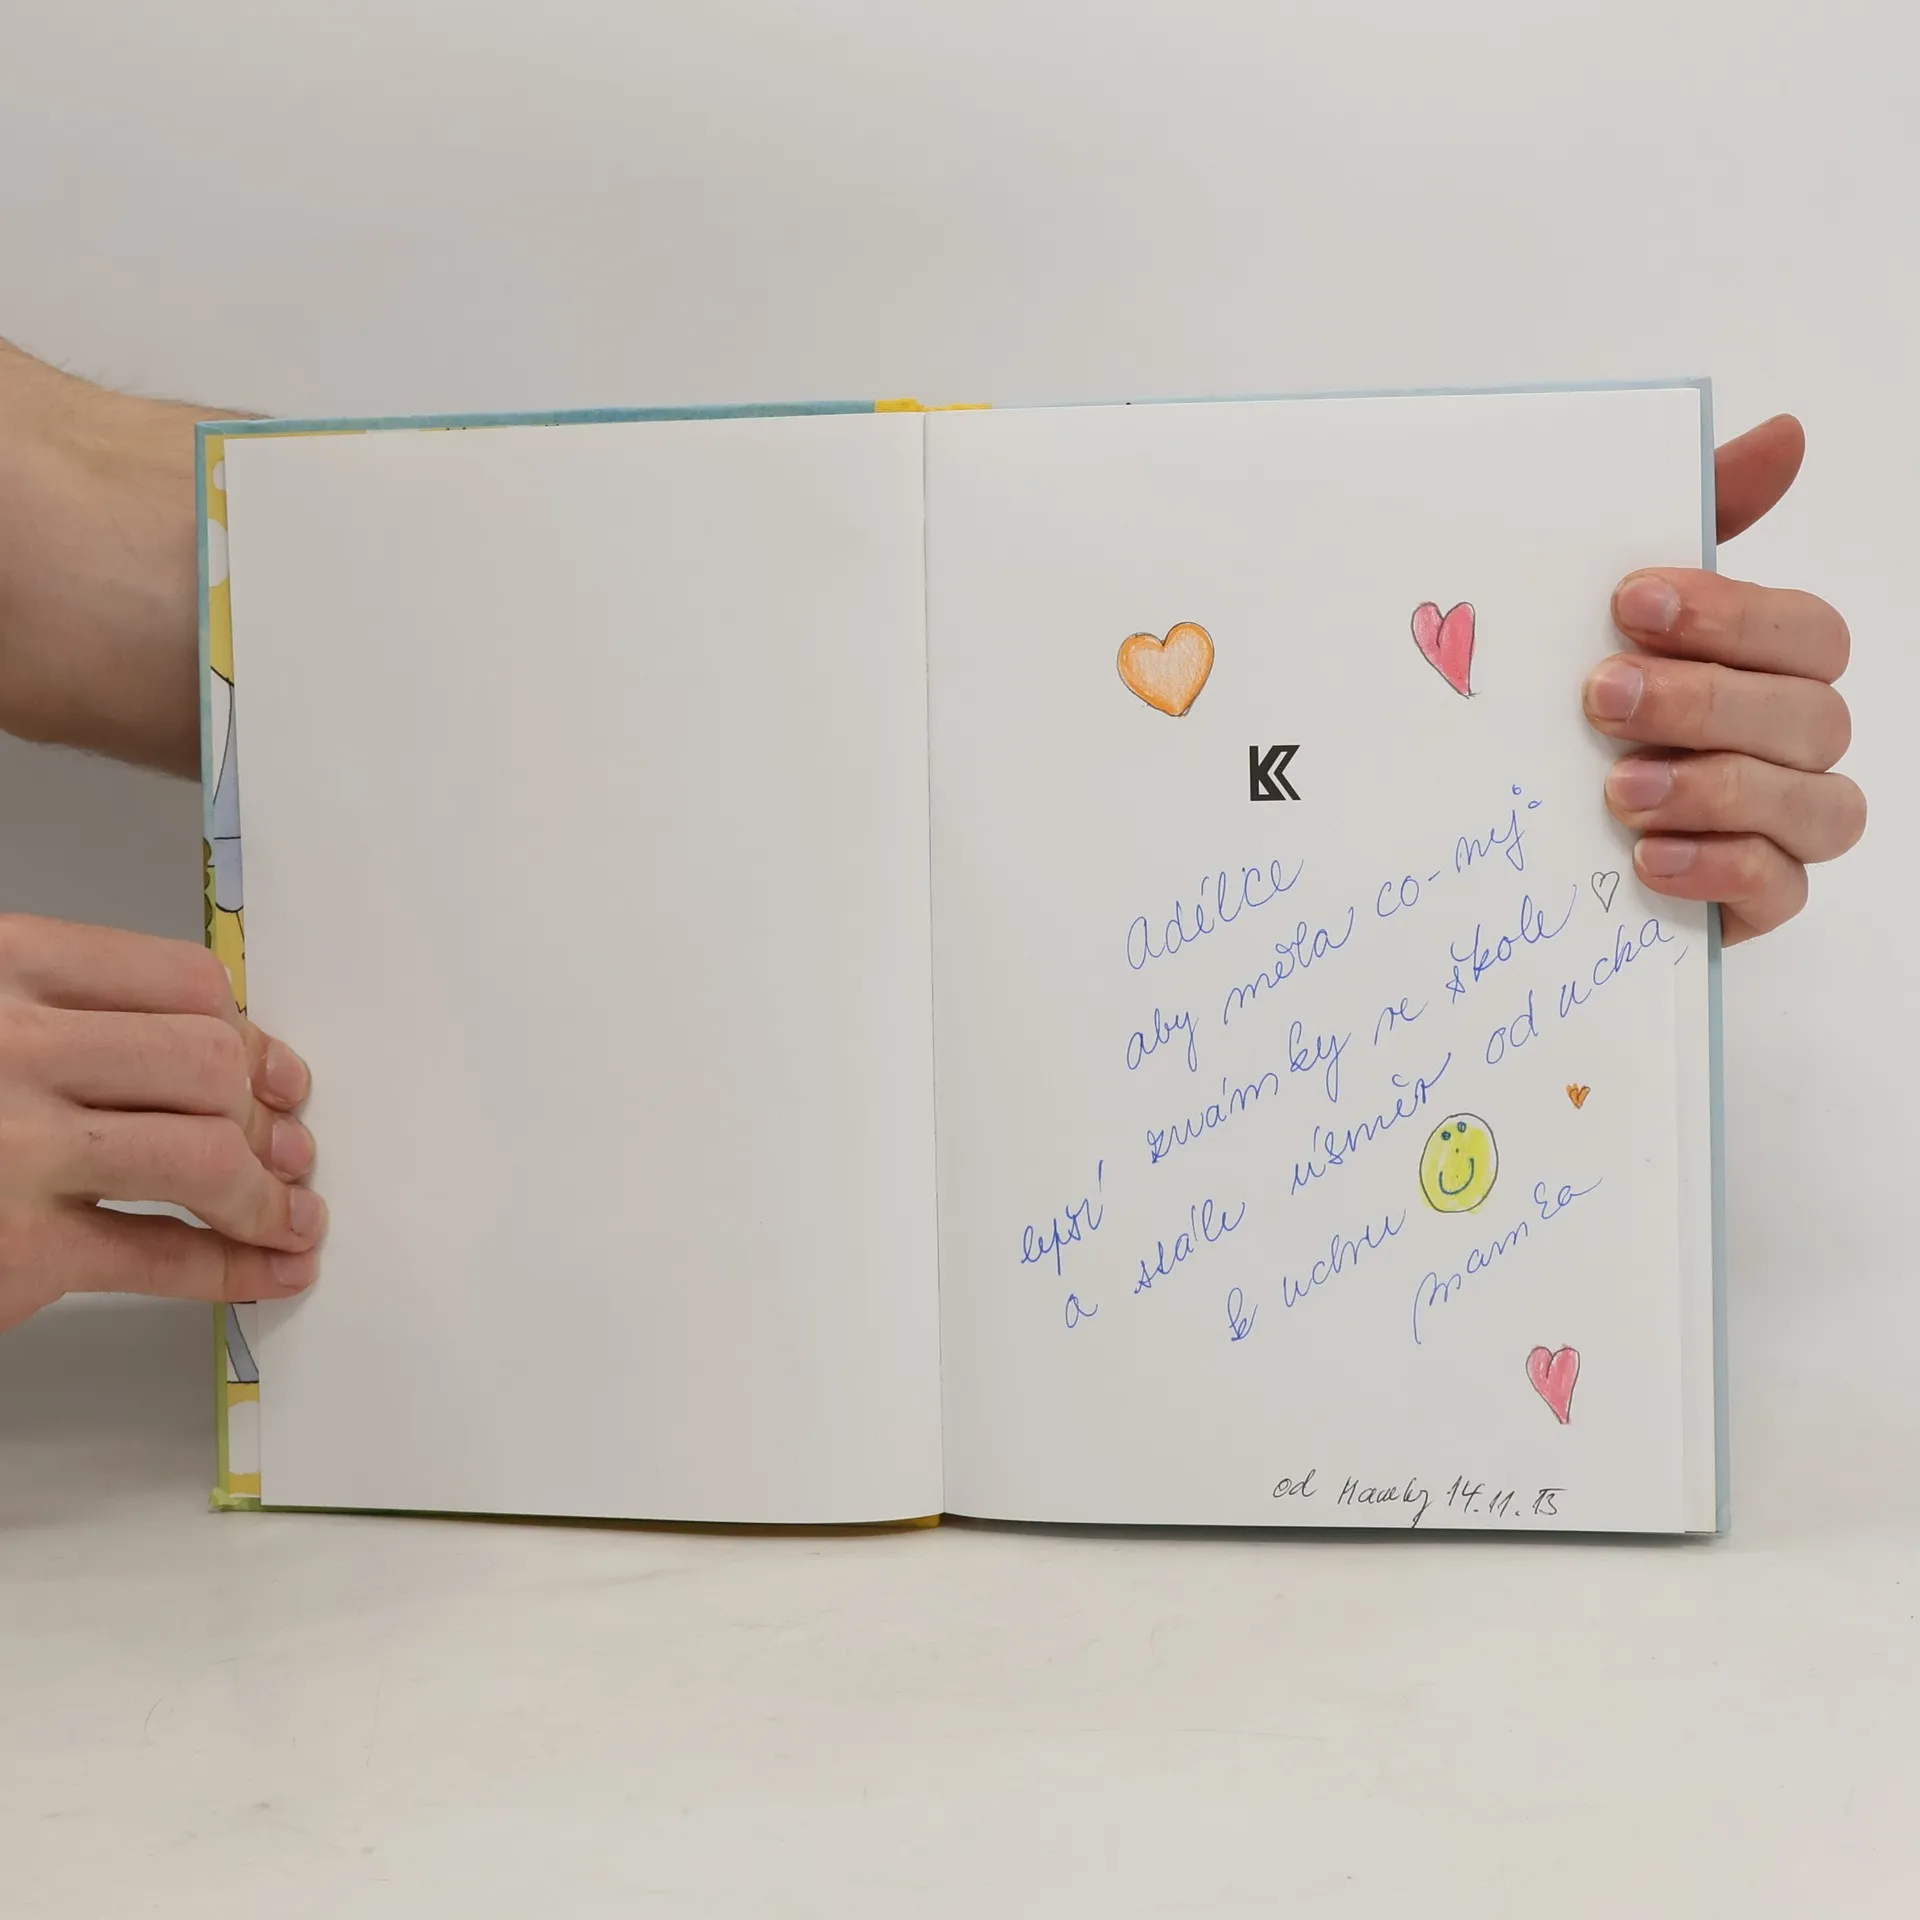 K
Adélce
aby měla co-nej-
lepší známky ve škole
a stále úsměv od ucha
k uchu
mamka
od Mamky 14.11.13